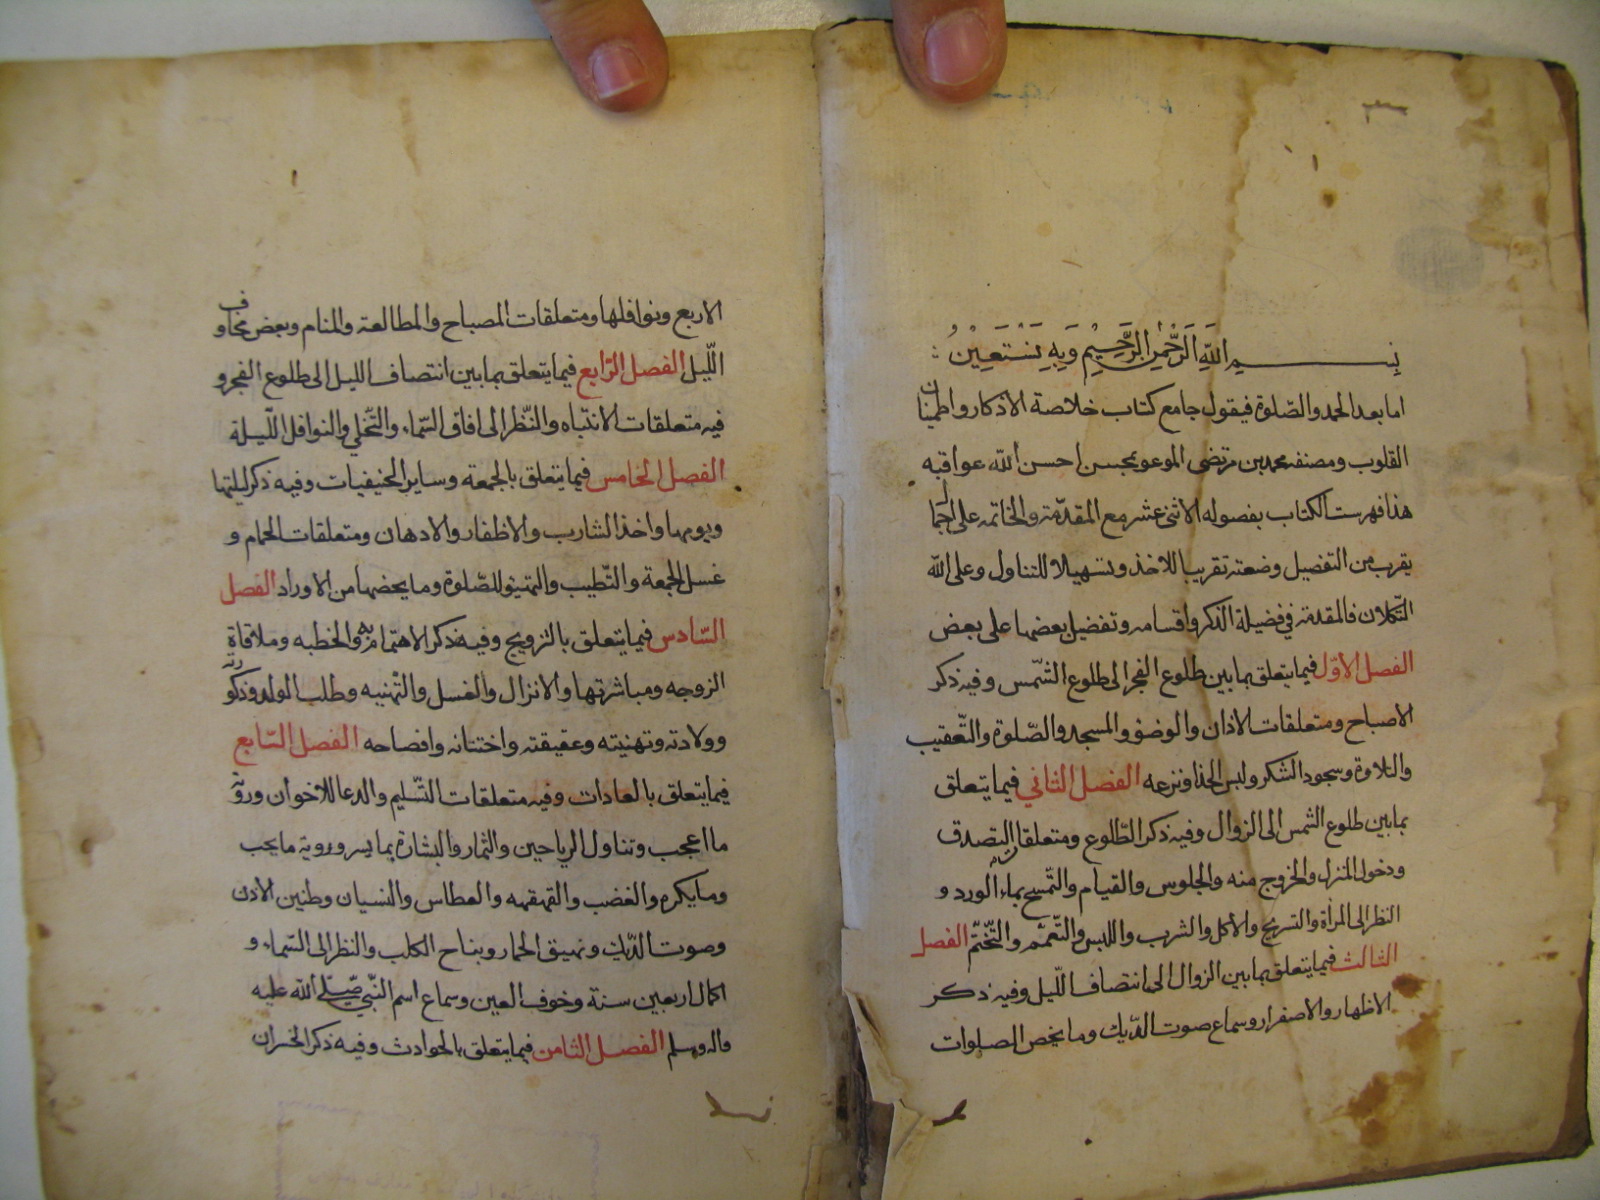 بسم الله الرحمن الرحيم وبه نستعين
اما بعد الحمد والصلوة فيقول جامع كتاب خلاصة الاذكار واطمينان
القلوب ومصنفه محمد بن مرتضى المدعو بمحسن احسن الله عواقبه
هذا فهرست الكتاب بفصوله الاثنى عشر مع المقدمة والخاتمه على اجمال
يقرب من التفصيل وضعته تقريبا للاخذ وتسهيلا للتناول وعلى الله
التكلان فالمقدمة في فضيلة الذكر واقسامه وتفضيل بعضها على بعض
الفصل الاوّل فيما يتعلق بما بين طلوع الفجر الى طلوع الشمس وفيه ذكر
الاصباح ومتعلقات الاذان والوضؤ والمسجد والصّلوة والتّعقيب
والتلاوة وسجود الشكر ولبس الحذا ونزعه الفصل الثاني فيما يتعلق
بما بين طلوع الشمس الى الزوال وفيه ذكر الطّلوع ومتعلقات التصدق
ودخول المنزل والخروج منه والجلوس والقيام والتّمسح بماء الورد و
النظر الى المراة والتسريح والاكل والشرب واللبس والتعمّم والتّختّم الفصل
الثالث فيما يتعلق بما بين الزوال الى انتصاف اللّيل وفيه ذكر
الاظهار والاصفرار وسماع صوت الدّيك وما يخص الصلوات
الاربع ونوافلها ومتعلقات المصباح والمطالعة والمنام وبعض مخاوف
اللّيل الفصل الرّابع فيما يتعلق بما بين انتصاف الليل الى طلوع الفجر و
فيه متعلقات الانتباه والنّظر الى افاق السّماء والتّخلي والنوافل اللّيلة
الفصل الخامس فيما يتعلق بالجمعة وساير الحنيفيات وفيه ذكر ليلتها
ويومها واخذ الشارب والاظفار والادهان ومتعلقات الحمام و
غسل الجمعة والتّطيب والتهيؤ للصّلوة وما يخصها من الاوراد الفصل
السّادس فيما يتعلق بالتزويج وفيه ذكر الاهتمام به والخطبه وملاقاة
الزوجه ومباشرتها والانزال والغسل والتهنيه وطلب الولد وذكورته
وولادته وتهنيته وعقيقته واختتانه وافصاحه الفصل السّابع
فيما يتعلق بالعادات وفيه متعلقات التّسليم والدعا للاخوان ورؤية
ما اعجب وتناول الرياحين والثمار والبشارة بما يسر ورؤية ما يحب
وما يكره والغضب والقهقهه والعطاس والنسيان وطنين الاذن
وصوت الدّيك ونهيق الحمار ونباح الكلب والنظر الى السّماء و
اكمال اربعين سنة وخوف العين وسماع اسم النّبي صلّى الله عليه
واله وسلم الفصل الثامن فيما يتعلق بالحوادث وفيه ذكر الخسران